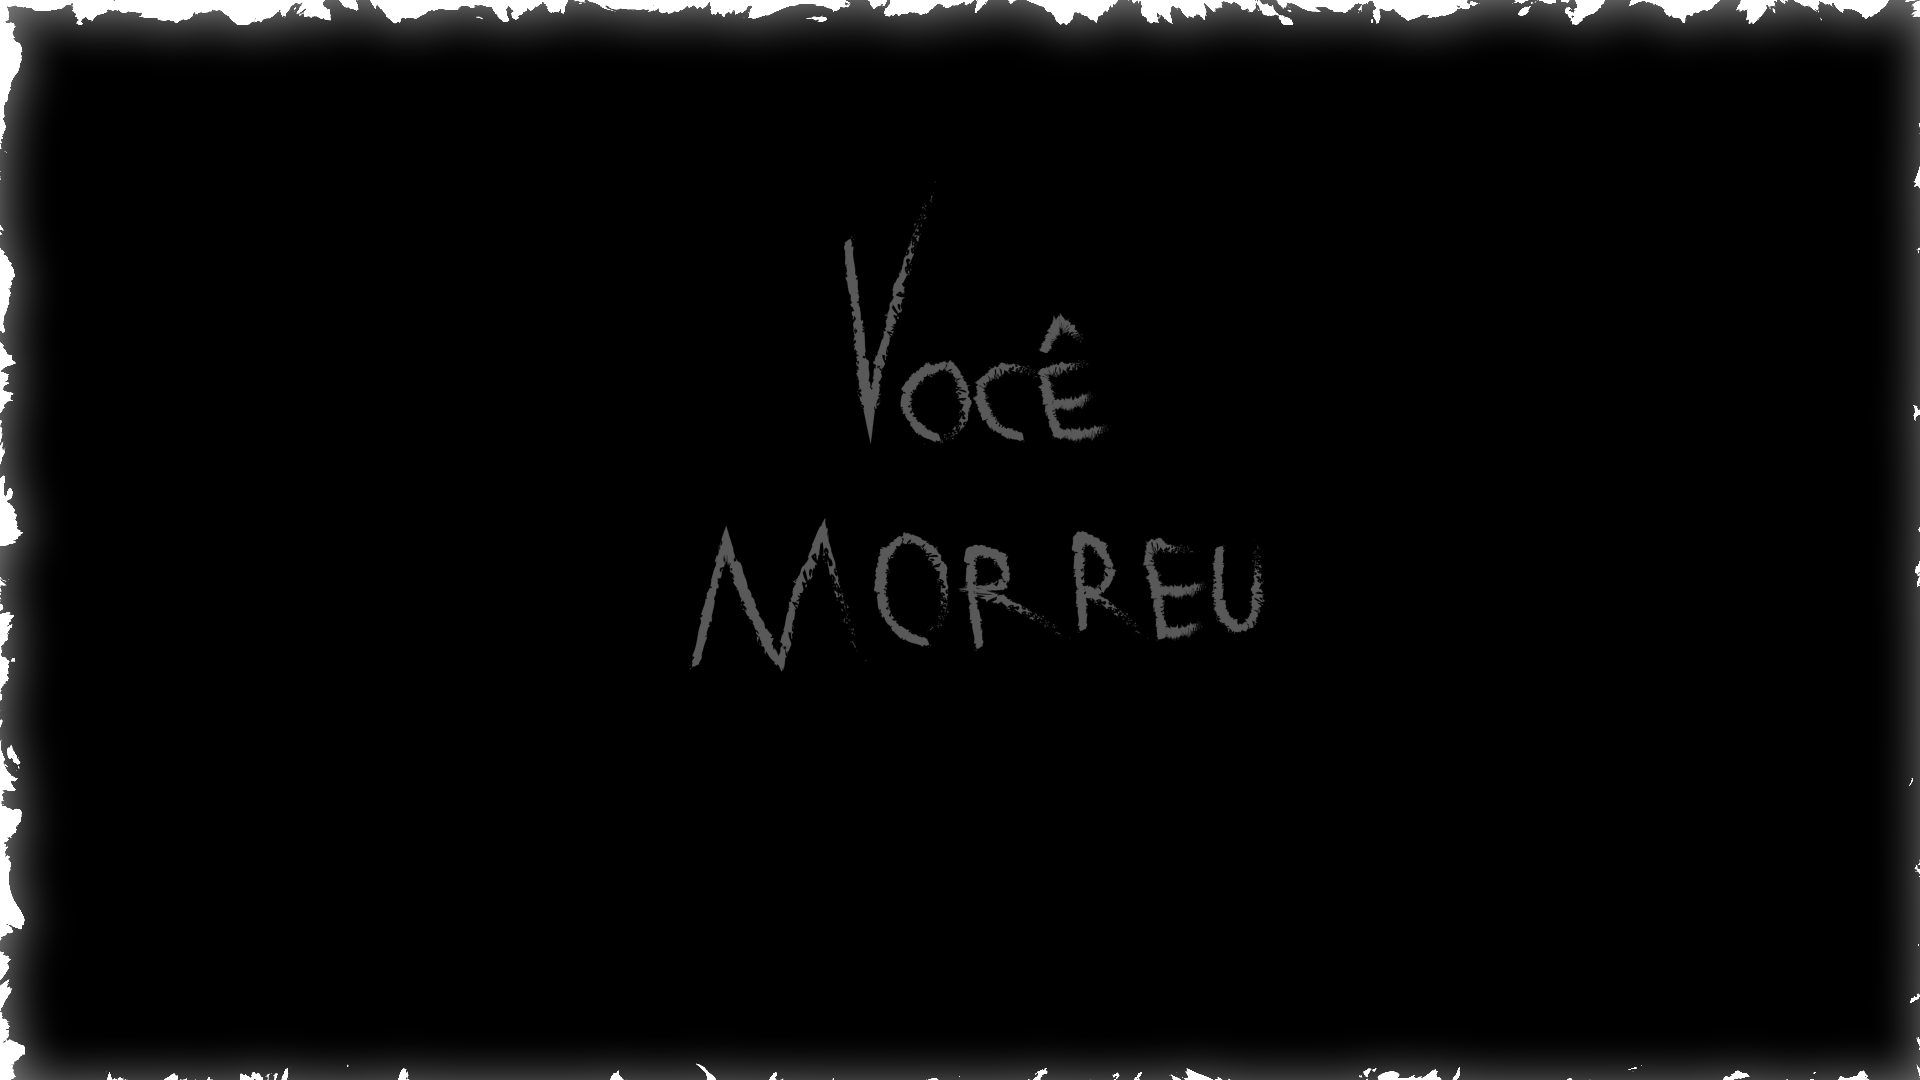 Você
MORREU